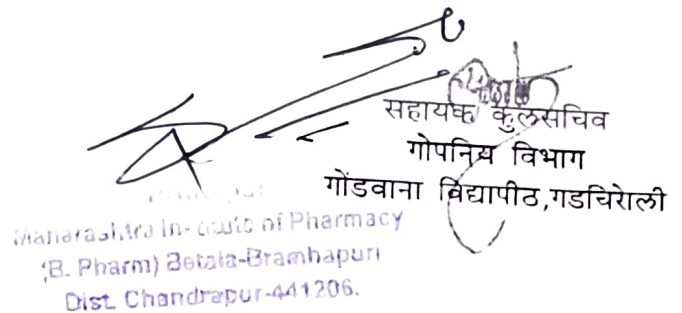 सहायक कुलसचिव
गोपनिय विभाग
गोंडवाना विद्यापीठ,गडचिरोली
Principal
Maharashtra Institute of Pharmacy
(B. Pharm) Betala-Bramhapuri
Dist. Chandrapur-441206.